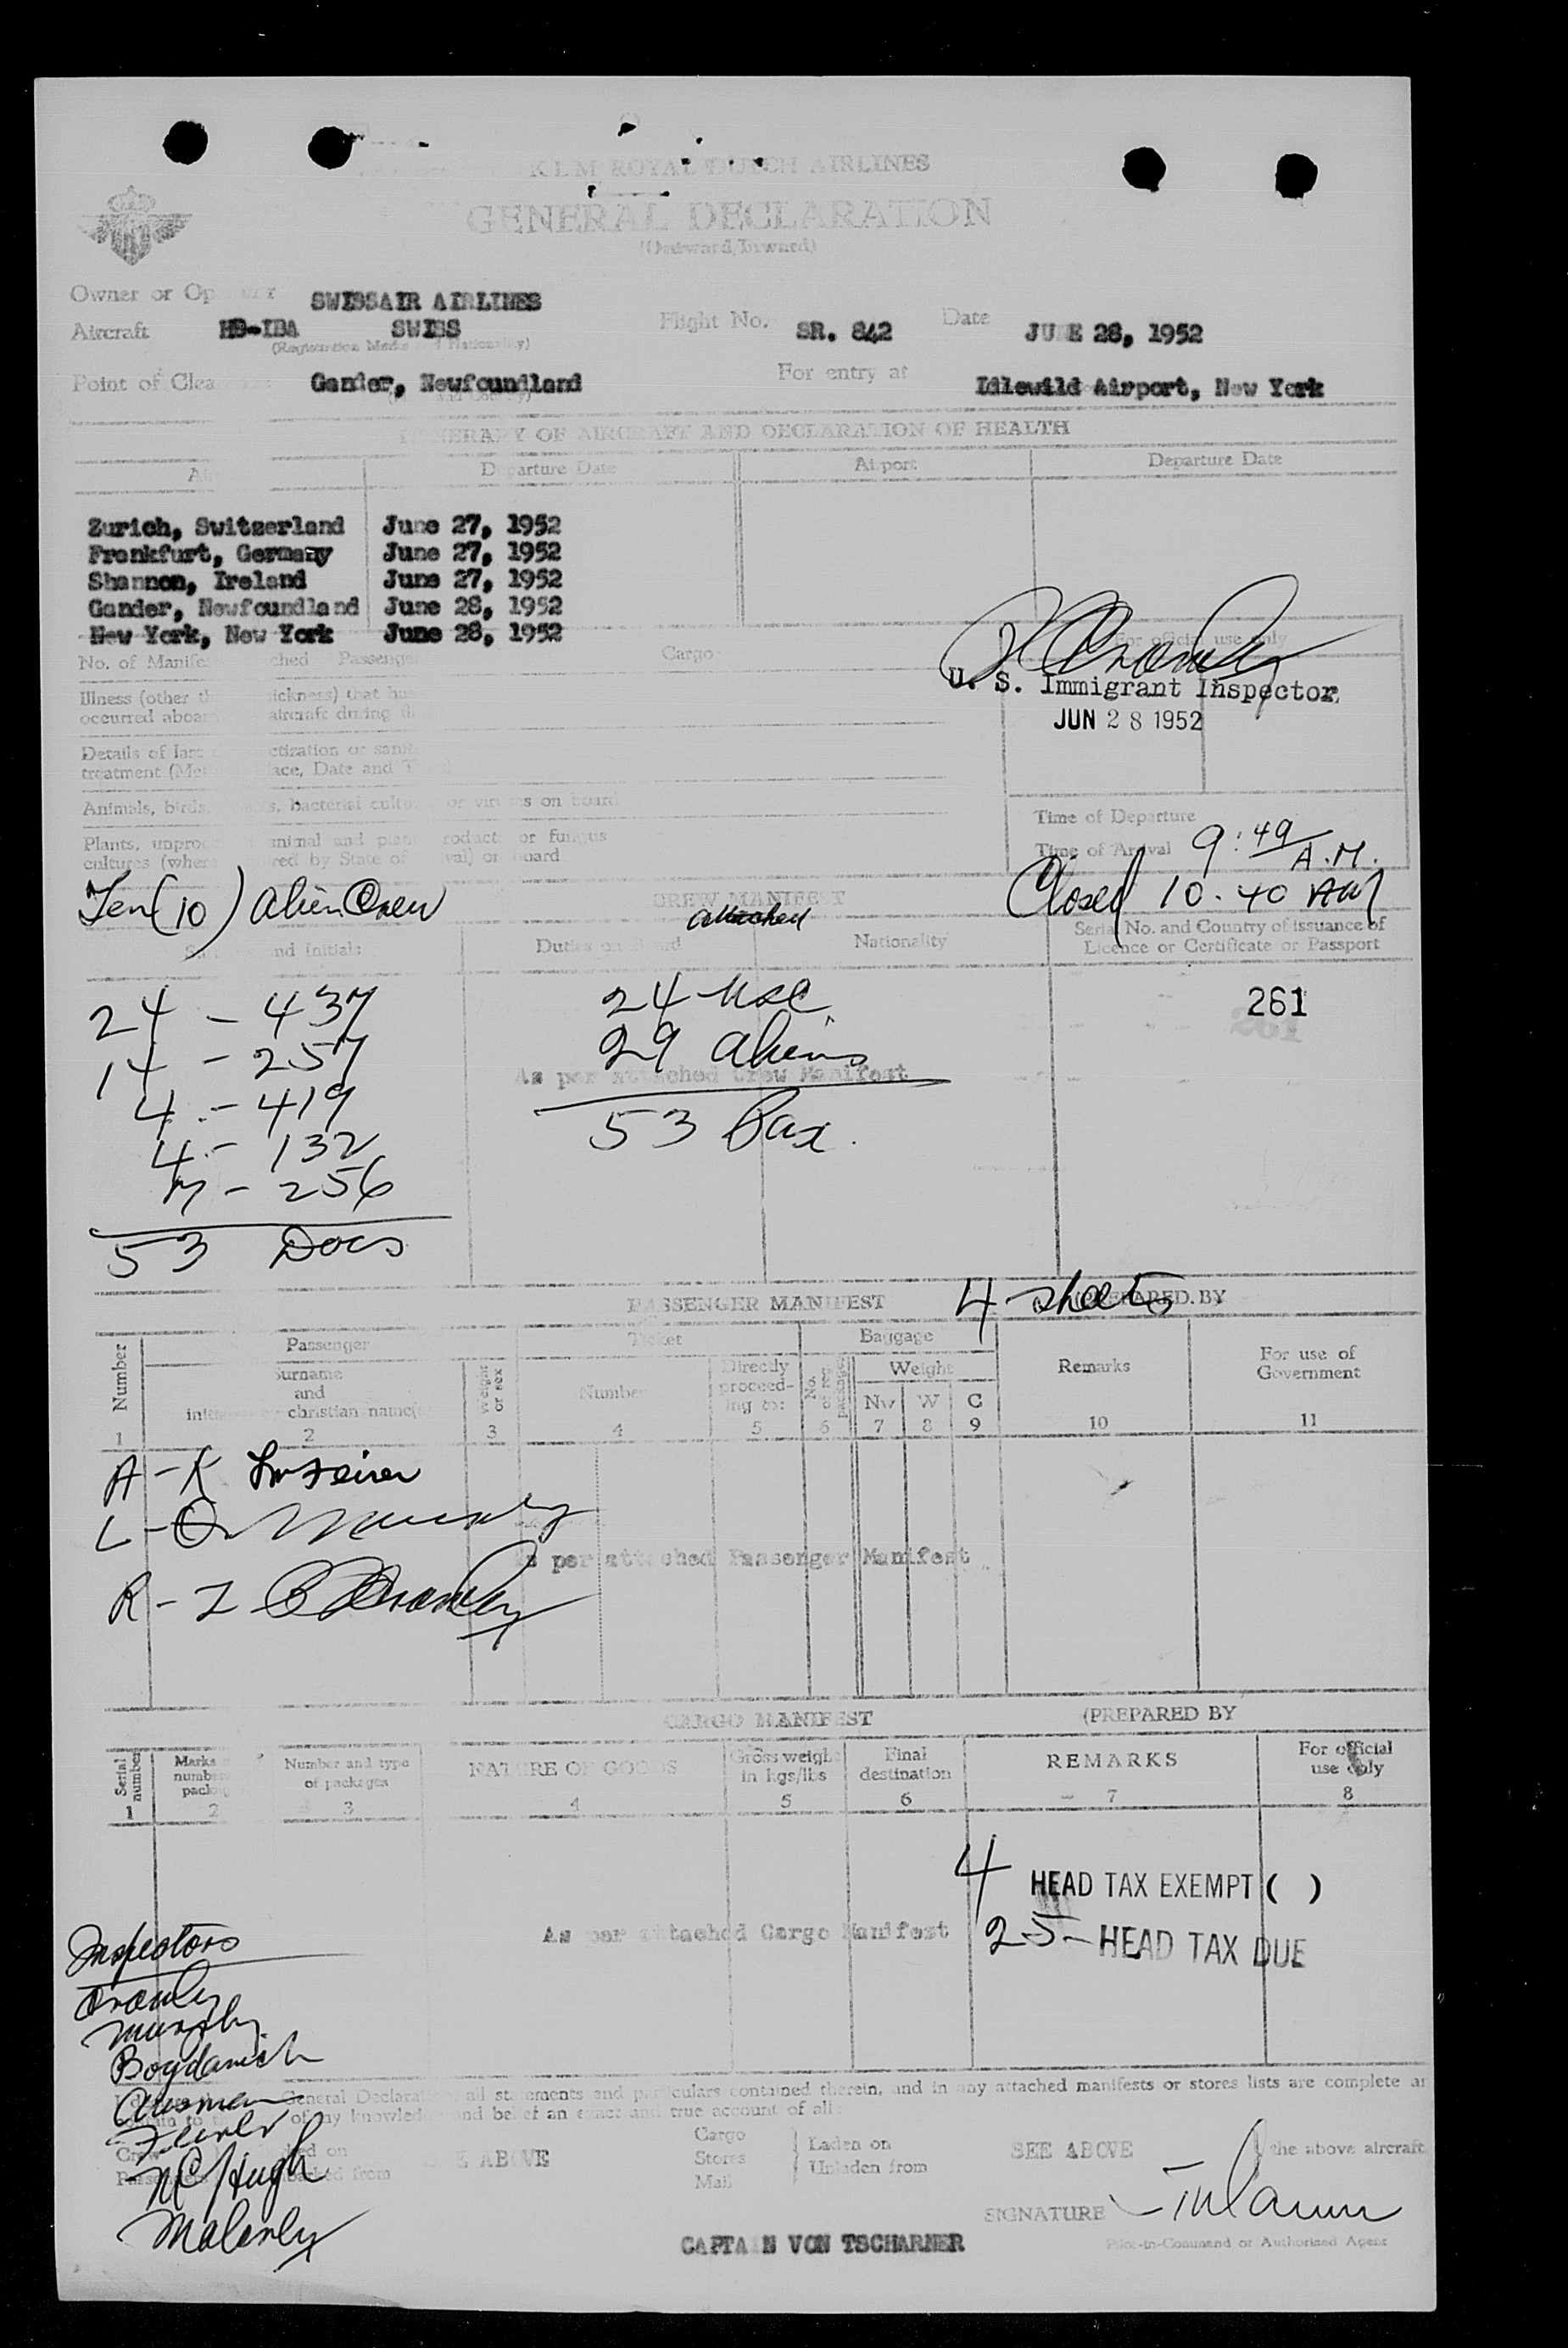 KLM ROYAL DUTCH AIRLINES
GENERAL DECLARATION
(Outward/Inward)
Owner or Op SWISSAIR AIRLINES
Aircraft HB-IBA SWISS Flight No. SR. 842 Date JUNE 28, 1952
(Registration Marks and Nationality)
Point of Clea Gander, Newfoundland For entry at Idlewild Airport, New York
ITINERARY OF AIRCRAFT AND DECLARATION OF HEALTH
Departure Date Airport Departure Date
Zurich, Switzerland June 27, 1952
Frankfurt, Germany June 27, 1952
Shannon, Ireland June 27, 1952
Gander, Newfoundland June 28, 1952
New York, New York June 28, 1952
For official use only
No. of Manife ched Passenge Cargo
U. S. Immigrant Inspector
JUN 28 1952
Illness (other th ickness) that ha
occurred aboa aircraft during fl
Details of last ctization or sani
treatment (Me lace, Date and T
Animals, birds, s, bacterial cultu or viruses on board
Plants, unproc animal and plant products or fungus
cultures (wher red by State of val) on board
Time of Departure
Time of Arrival 9:49 A.M.
Closed 10.40 AM
Ten (10) Alien Crew
CREW MANIFEST
attached
nd Initials Duties on Board Nationality Serial No. and Country of issuance of
Licence or Certificate or Passport
24 - 437
14 - 257
4 - 419
4 - 132
7 - 256
53 Docs
24 USC
29 Aliens
As per attached Crew Manifest
53 Pax.
261
PASSENGER MANIFEST 4 sheets PREPARED BY
Number Passenger Ticket Baggage Remarks For use of
Government
Surname
and
christian name(s
Weight
or sex
Number
Directly
proceed-
ing to:
No. of
packages
Weight
Nw W C
1 2 3 4 5 6 7 8 9 10 11
A - K
L - Q Murphy
R - Z Cromley
As per attached Passenger Manifest
CARGO MANIFEST (PREPARED BY
Serial
number
Marks
number
pack
Number and type
of packages
NATURE OF GOODS
Gross weight
in kgs/lbs
Final
destination
REMARKS
For official
use only
1 2 3 4 5 6 7 8
4 HEAD TAX EXEMPT ( )
As per attached Cargo Manifest
25 - HEAD TAX DUE
Inspectors
Cromley
Murphy
Bogdanich
McHugh
General Declarat all statements and particulars contained therein, and in any attached manifests or stores lists are complete an
of my knowledge and belief an exact and true account of all:
Cargo
Stores
Mail
Laden on
Unladen from
SEE ABOVE the above aircraft
E ABOVE
SIGNATURE
CAPTAIN VON TSCHARNER
Pilot-in-Command or Authorised Agent